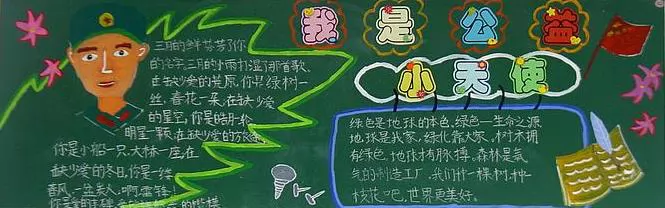 我是公益
小天使
三月的鲜花芳了你
的名字,三月的小雨打湿了那首歌,
在缺少爱的荒原,你是绿树一
丝,春花一朵,在缺少爱
的星空,你是皓月一轮
明星一颗,在缺少爱的旅途,
你是小船一只,大林一座,在
缺少爱的冬日,你是一缕
春风,一盆炭火,啊,雷锋!
绿色是地球的本色,绿色—生命之源
地球是我家,绿化靠大家。树木拥
有绿色,地球才有脉搏。森林是氧
气的制造工厂,我们种一棵树,种一
枝花吧,世界更美好。